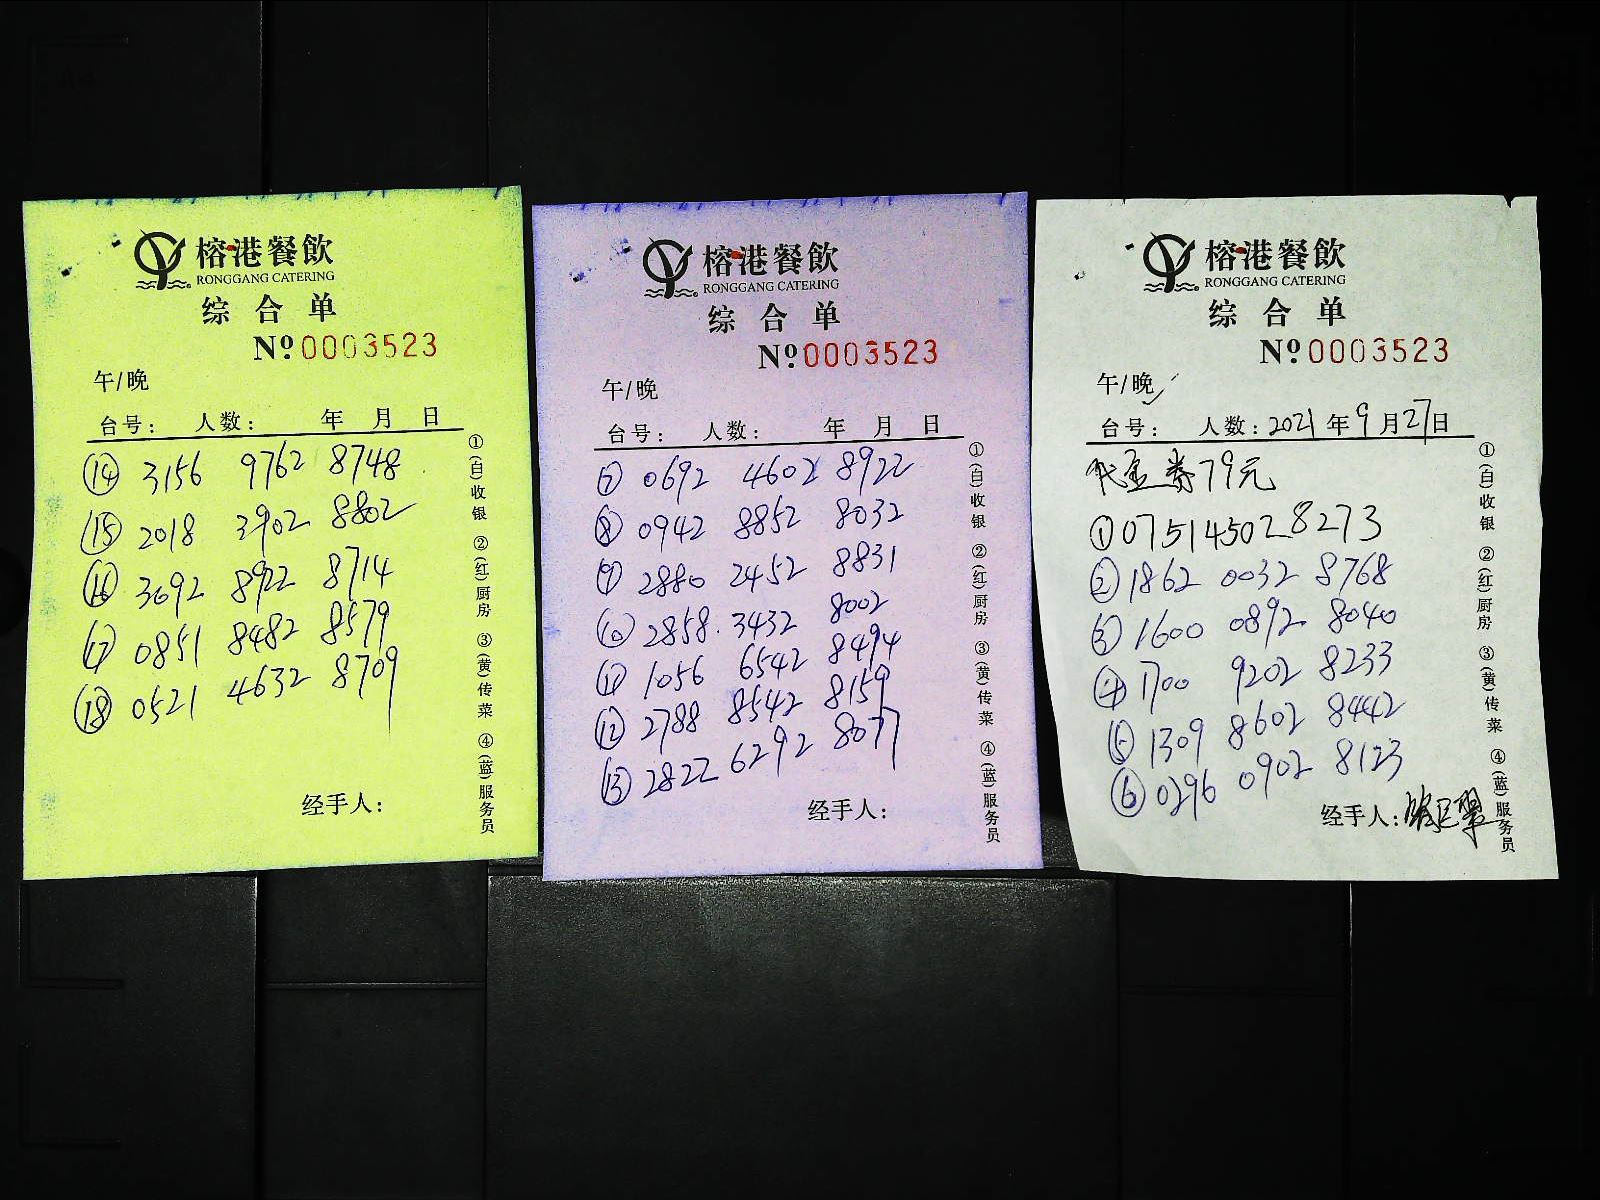 榕港餐飲
RONGGANG CATERING
综合单
Nº 0003523
午/晚
台号: 人数: 年 月 日
⑭ 3156 9762 8748
⑮ 2018 3902 8802
⑯ 3692 8922 8714
⑰ 0851 8482 8579
⑱ 0521 4632 8709
经手人:
①(白)收银 ②(红)厨房 ③(黄)传菜 ④(蓝)服务员
榕港餐飲
RONGGANG CATERING
综合单
Nº 0003523
午/晚
台号: 人数: 年 月 日
⑦ 0692 4602 8922
⑧ 0942 8852 8032
⑨ 2880 2452 8831
⑩ 2858. 3432 8002
⑪ 1056 6542 8494
⑫ 2788 8542 8159
⑬ 2822 6292 8077
经手人:
①(白)收银 ②(红)厨房 ③(黄)传菜 ④(蓝)服务员
榕港餐飲
RONGGANG CATERING
综合单
Nº 0003523
午/晚✓
台号: 人数: 2021年9月27日
代金券79元
① 0751 4502 8273
② 1862 0032 8768
③ 1600 0892 8040
④ 1700 9202 8233
⑤ 1309 8602 8442
⑥ 0296 0902 8123
经手人:
①(白)收银 ②(红)厨房 ③(黄)传菜 ④(蓝)服务员